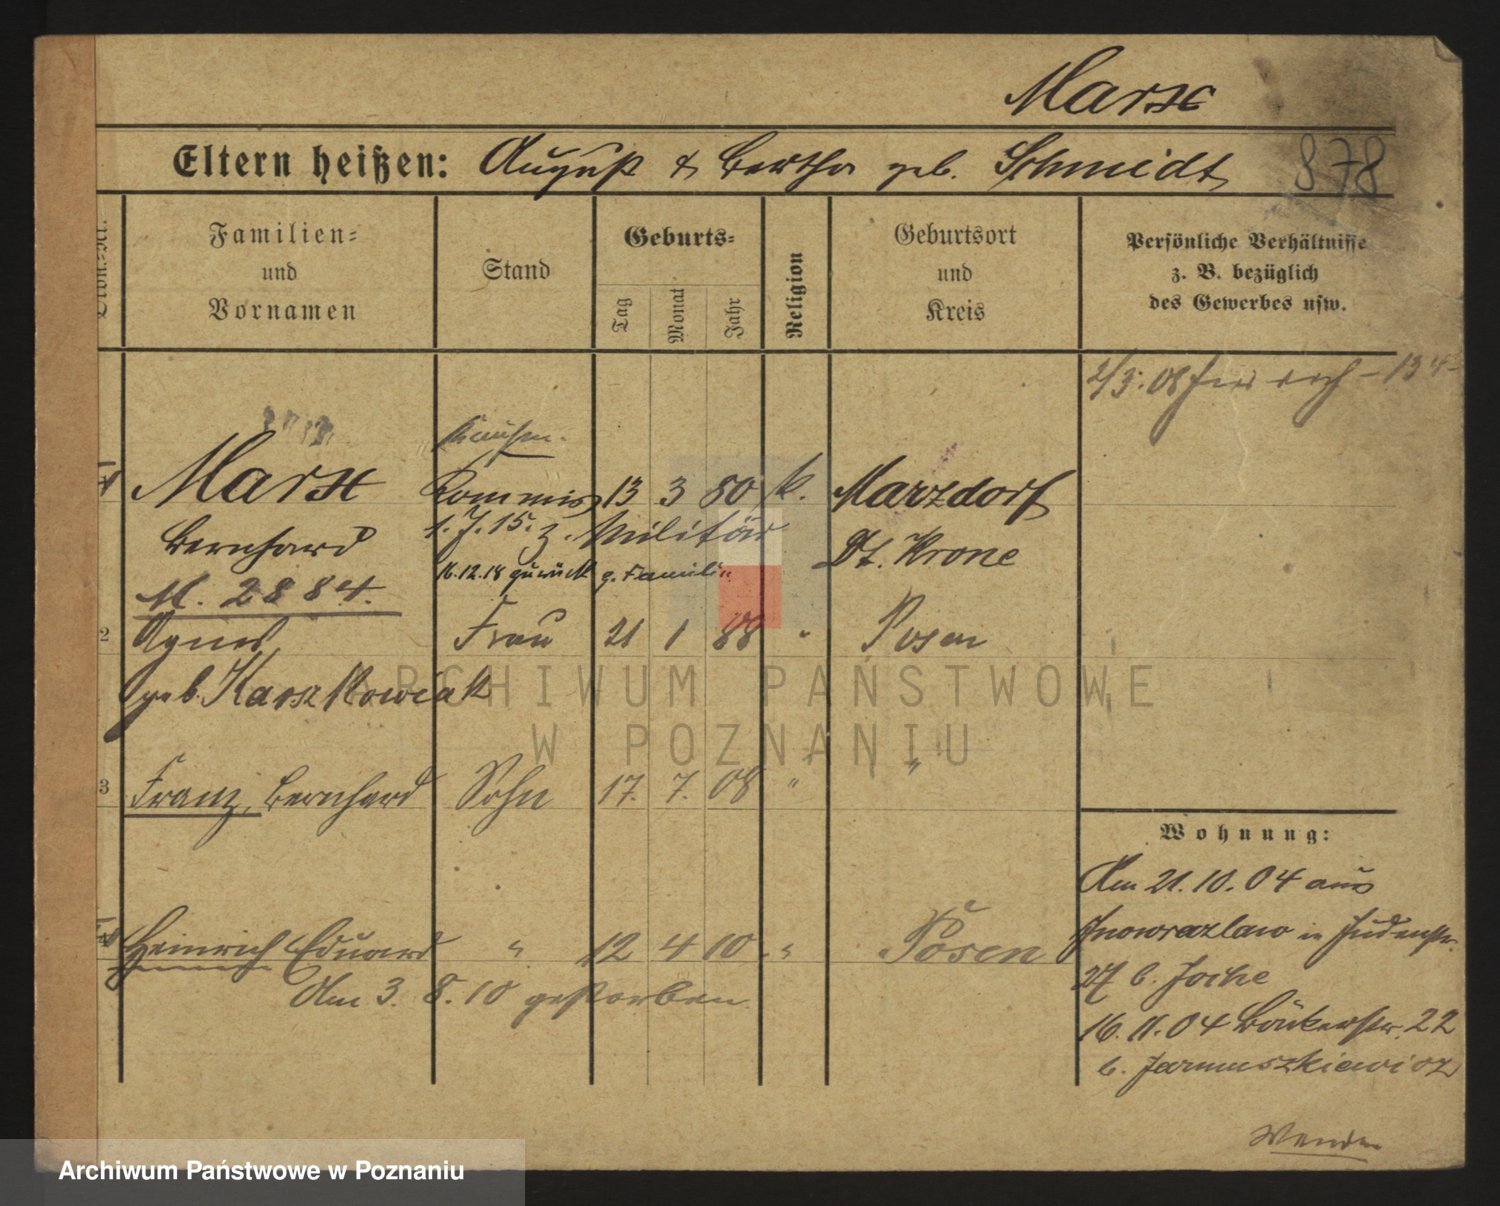 Marx
Eltern heißen: August & Bertha geb. Schmidt 878
Familien= und Vornamen
Stand
Geburts=
Tag Monat Jahr
Religion
Geburtsort und Kreis
Persönliche Verhältnisse
z. B. bezüglich
des Gewerbes usw.
2/3. 08
1 Marx Kommis 13 3 80 k. Marzdorf
Bernhard 1. 7. 15. z. Militär Dt. Krone
16.12.18 zurück z. Familie
M. 2884.
2 Agnes Frau 21 1 88 " Posen
geb. Kaszkowiak
3 Franz, Bernhard Sohn 17. 7. 08 " "
4 Heinrich Eduard " 12 4 10 " Posen
Am 3. 8. 10 gestorben.
Wohnung:
Am 21. 10. 04 aus
Inowrazlaw in Judenstr.
27 b.
16. 11. 04 Bäckerstr. 22
b. Jarmuszkiewicz
Wenden
ARCHIWUM PAŃSTWOWE
W POZNANIU
Archiwum Państwowe w Poznaniu